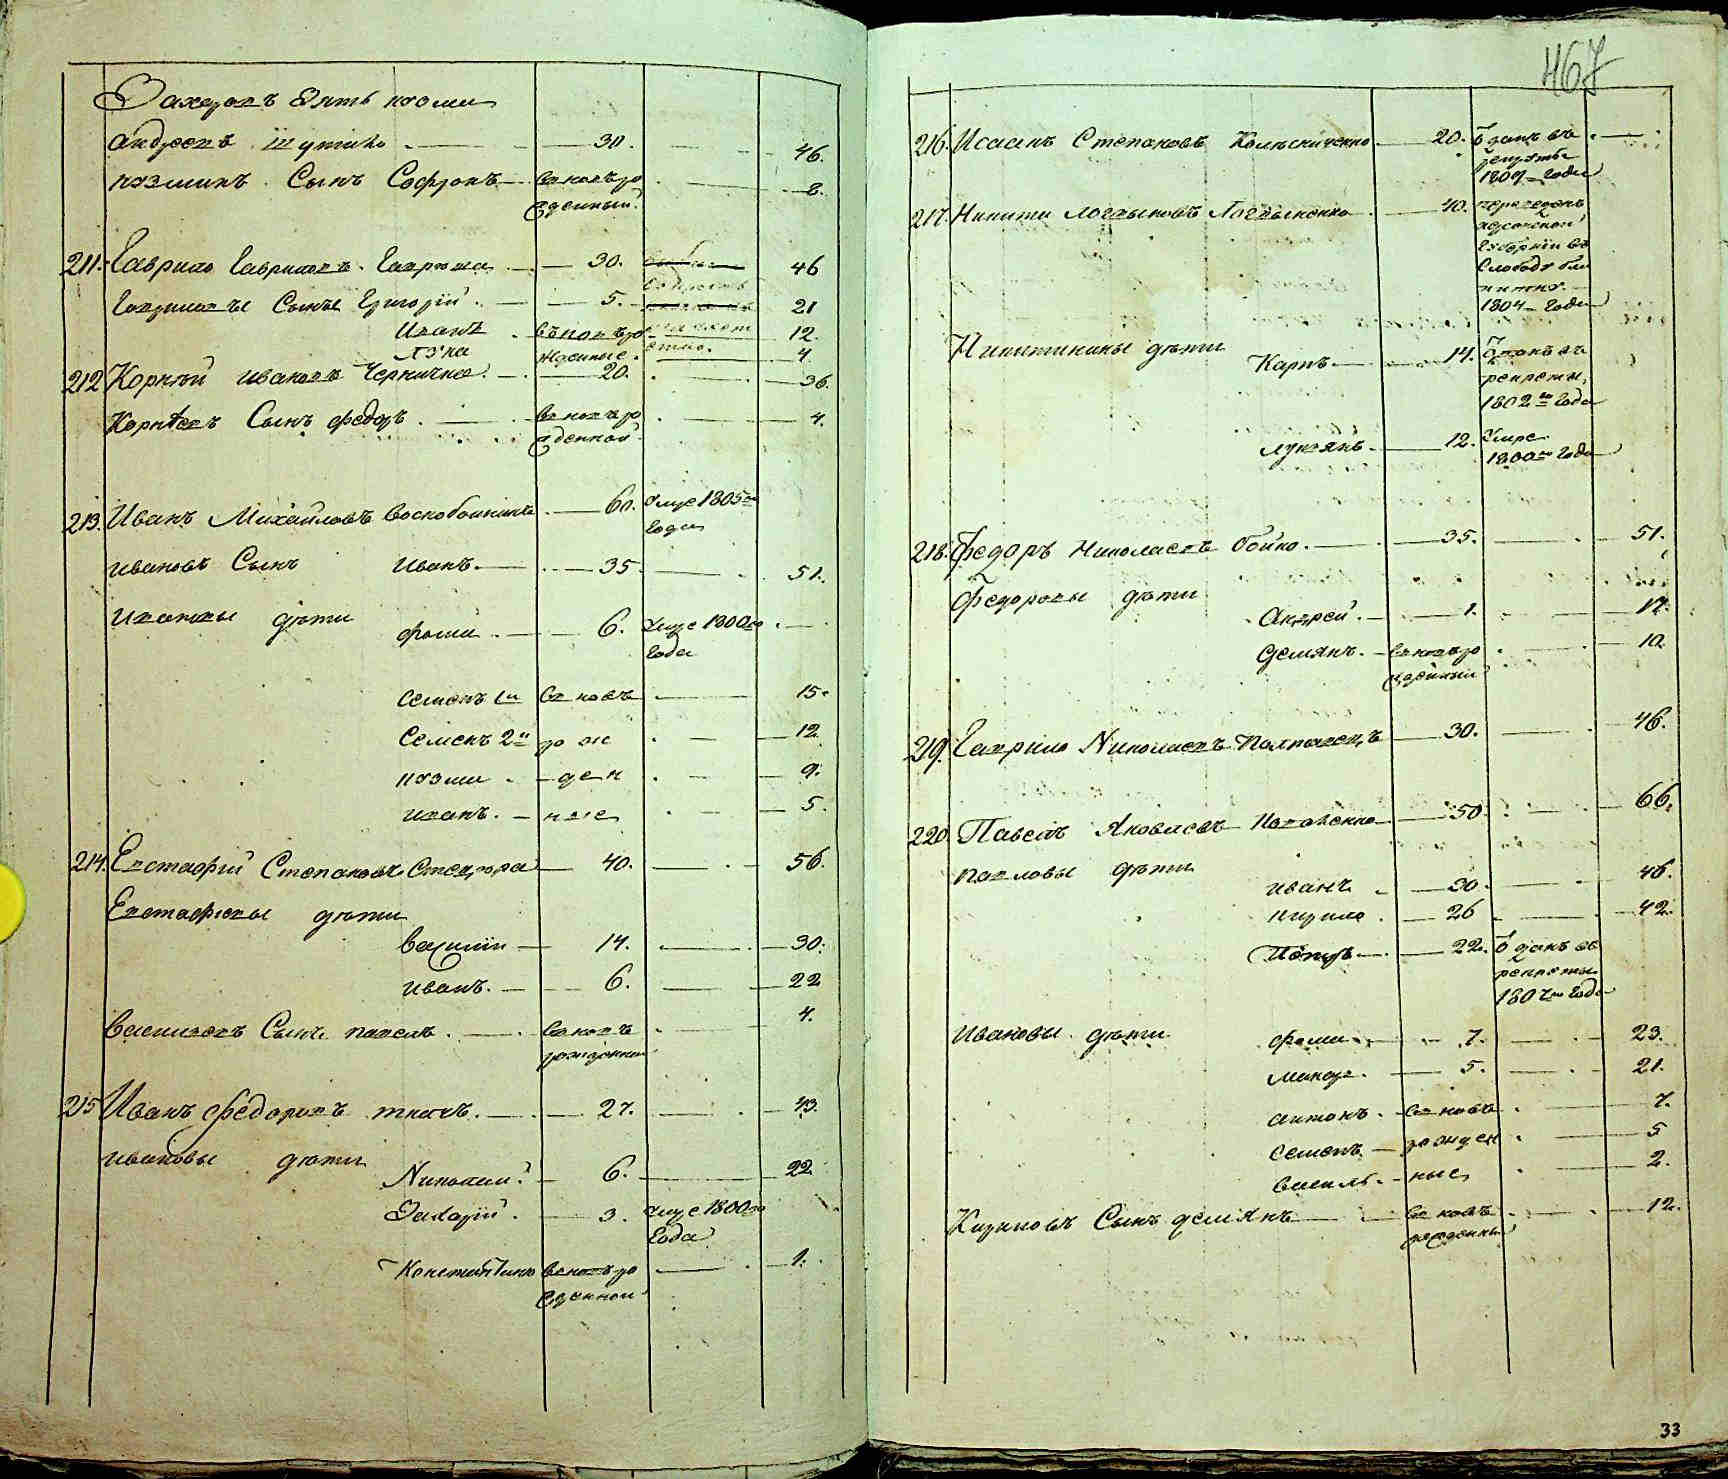 Захаровъ Зять козма
андреевъ шутка 30. 46.
козминъ Сынъ Софронъ вновь ро 8.
жденный
211. Гаврило Гавриловъ 30. 46
Гавриловы Сынъ Григорий 5. 21
Иванъ вновь ро 12.
Лука жденные 4.
212. Корнѣй ивановъ 20. 36.
Корнѣевъ Сынъ федоръ вновь ро 4.
жденной
213. Иванъ Михайловъ воскобойникъ 60. Умре 1805го
года
ивановъ Сынъ иванъ 35 51.
ивановы дѣти фома 6. Умре 1800го
года
семенъ 1й вновь 15.
семенъ 2й ро ж 12
козма ден 9.
иванъ ные 5.
214. Евстафий Степановъ 40. 56.
Евстафиевы дѣти
василий 14. 30.
иванъ 6. 22
василиевъ Сынъ павелъ вновь 4.
рожденный
215 Иванъ федоровъ ткачъ 27. 43.
ивановы дѣти
Николай 6. 22
Захарий 3. умре 1800го
года
Константинъ вновь ро 1.
жденной
467
216. Исаакъ Степановъ Колесниченко 20. Отданъ въ
рекруты
1807 года
217. Никита 40. переведенъ
херсонской
губернии въ
Слободу
1804 года
Никитины дѣти
Карпъ 14. Отданъ въ
рекруты
1802го года
лукянъ 12. Умре
1800го года
218. Федоръ Николаевъ бойко 35. 51.
Федоровы дѣти
Андрей 1. 17.
Демянъ вновь ро 10
жденный
219. Гаврило Николаевъ Полтавецъ 30. 46.
220 Павелъ Яковлевъ 50 66.
павловы дѣти
иванъ 30. 46.
кирило 26 42.
Петръ 22. Отданъ въ
рекруты
1807го года
Ивановы дѣти фома 7. 23.
макаръ 5. 21.
антонъ вновь 7.
семенъ рожден 5
василь ные 2.
Кириловъ Сынъ демянъ вновь 12.
рожденный
33